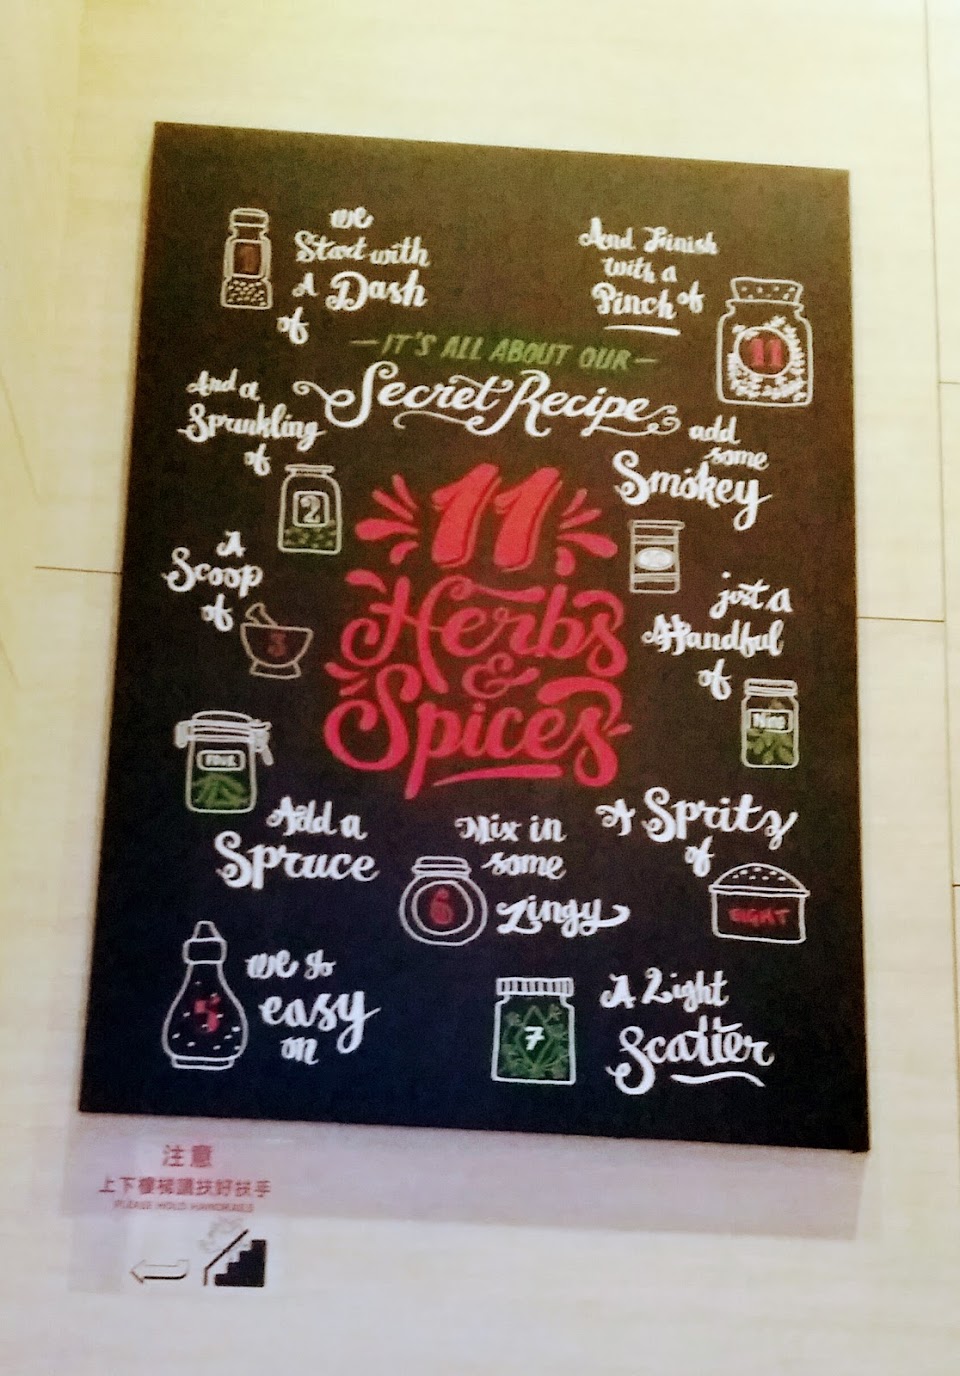 we
Start with
A Dash
of
1
And Finish
with a
Pinch of
11
IT'S ALL ABOUT OUR
Secret Recipe
11
Herbs
&
Spices
And a
Sprinkling
of
2
A
Scoop
of
3
FOUR
Add a
Spruce
5
we go
easy
on
6
Mix in
some
Zingy
7
A Light
Scatter
A Spritz
of
EIGHT
just a
Handful
of
Nine
add
some
Smokey
注意
上下樓梯請扶好扶手
PLEASE HOLD HANDRAILS